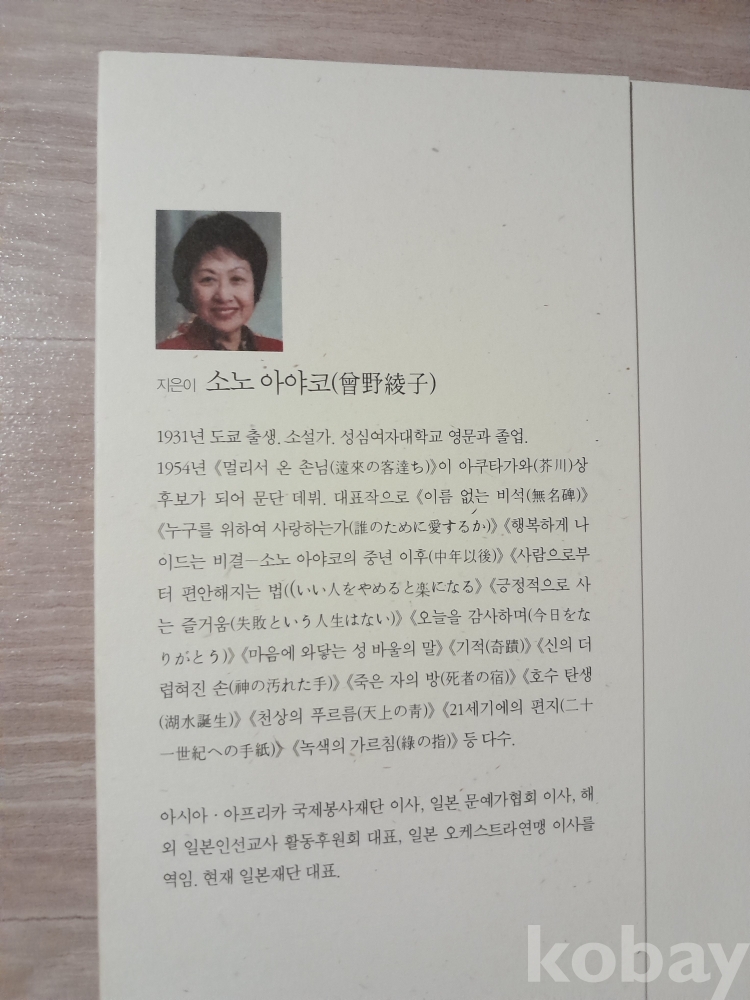 지은이 소노 아야코(曾野綾子)
1931년 도쿄 출생. 소설가. 성심여자대학교 영문과 졸업.
1954년 《멀리서 온 손님(遠來の客達ち)》이 아쿠타가와(芥川)상
후보가 되어 문단 데뷔. 대표작으로 《이름 없는 비석(無名碑)》
《누구를 위하여 사랑하는가(誰のために愛するか)》 《행복하게 나
이드는 비결—소노 아야코의 중년 이후(中年以後)》 《사람으로부
터 편안해지는 법((いい人をやめると楽になる》 《긍정적으로 사
는 즐거움(失敗という人生はない)》 《오늘을 감사하며(今日をな
りがとう)》 《마음에 와닿는 성 바울의 말》 《기적(奇蹟)》 《신의 더
럽혀진 손(神の汚れた手)》 《죽은 자의 방(死者の宿)》 《호수 탄생
(湖水誕生)》 《천상의 푸르름(天上の靑)》 《21세기에의 편지(二十
一世紀への手紙)》 《녹색의 가르침(綠の指)》 등 다수.
아시아 · 아프리카 국제봉사재단 이사, 일본 문예가협회 이사, 해
외 일본인선교사 활동후원회 대표, 일본 오케스트라연맹 이사를
역임. 현재 일본재단 대표.
kobay